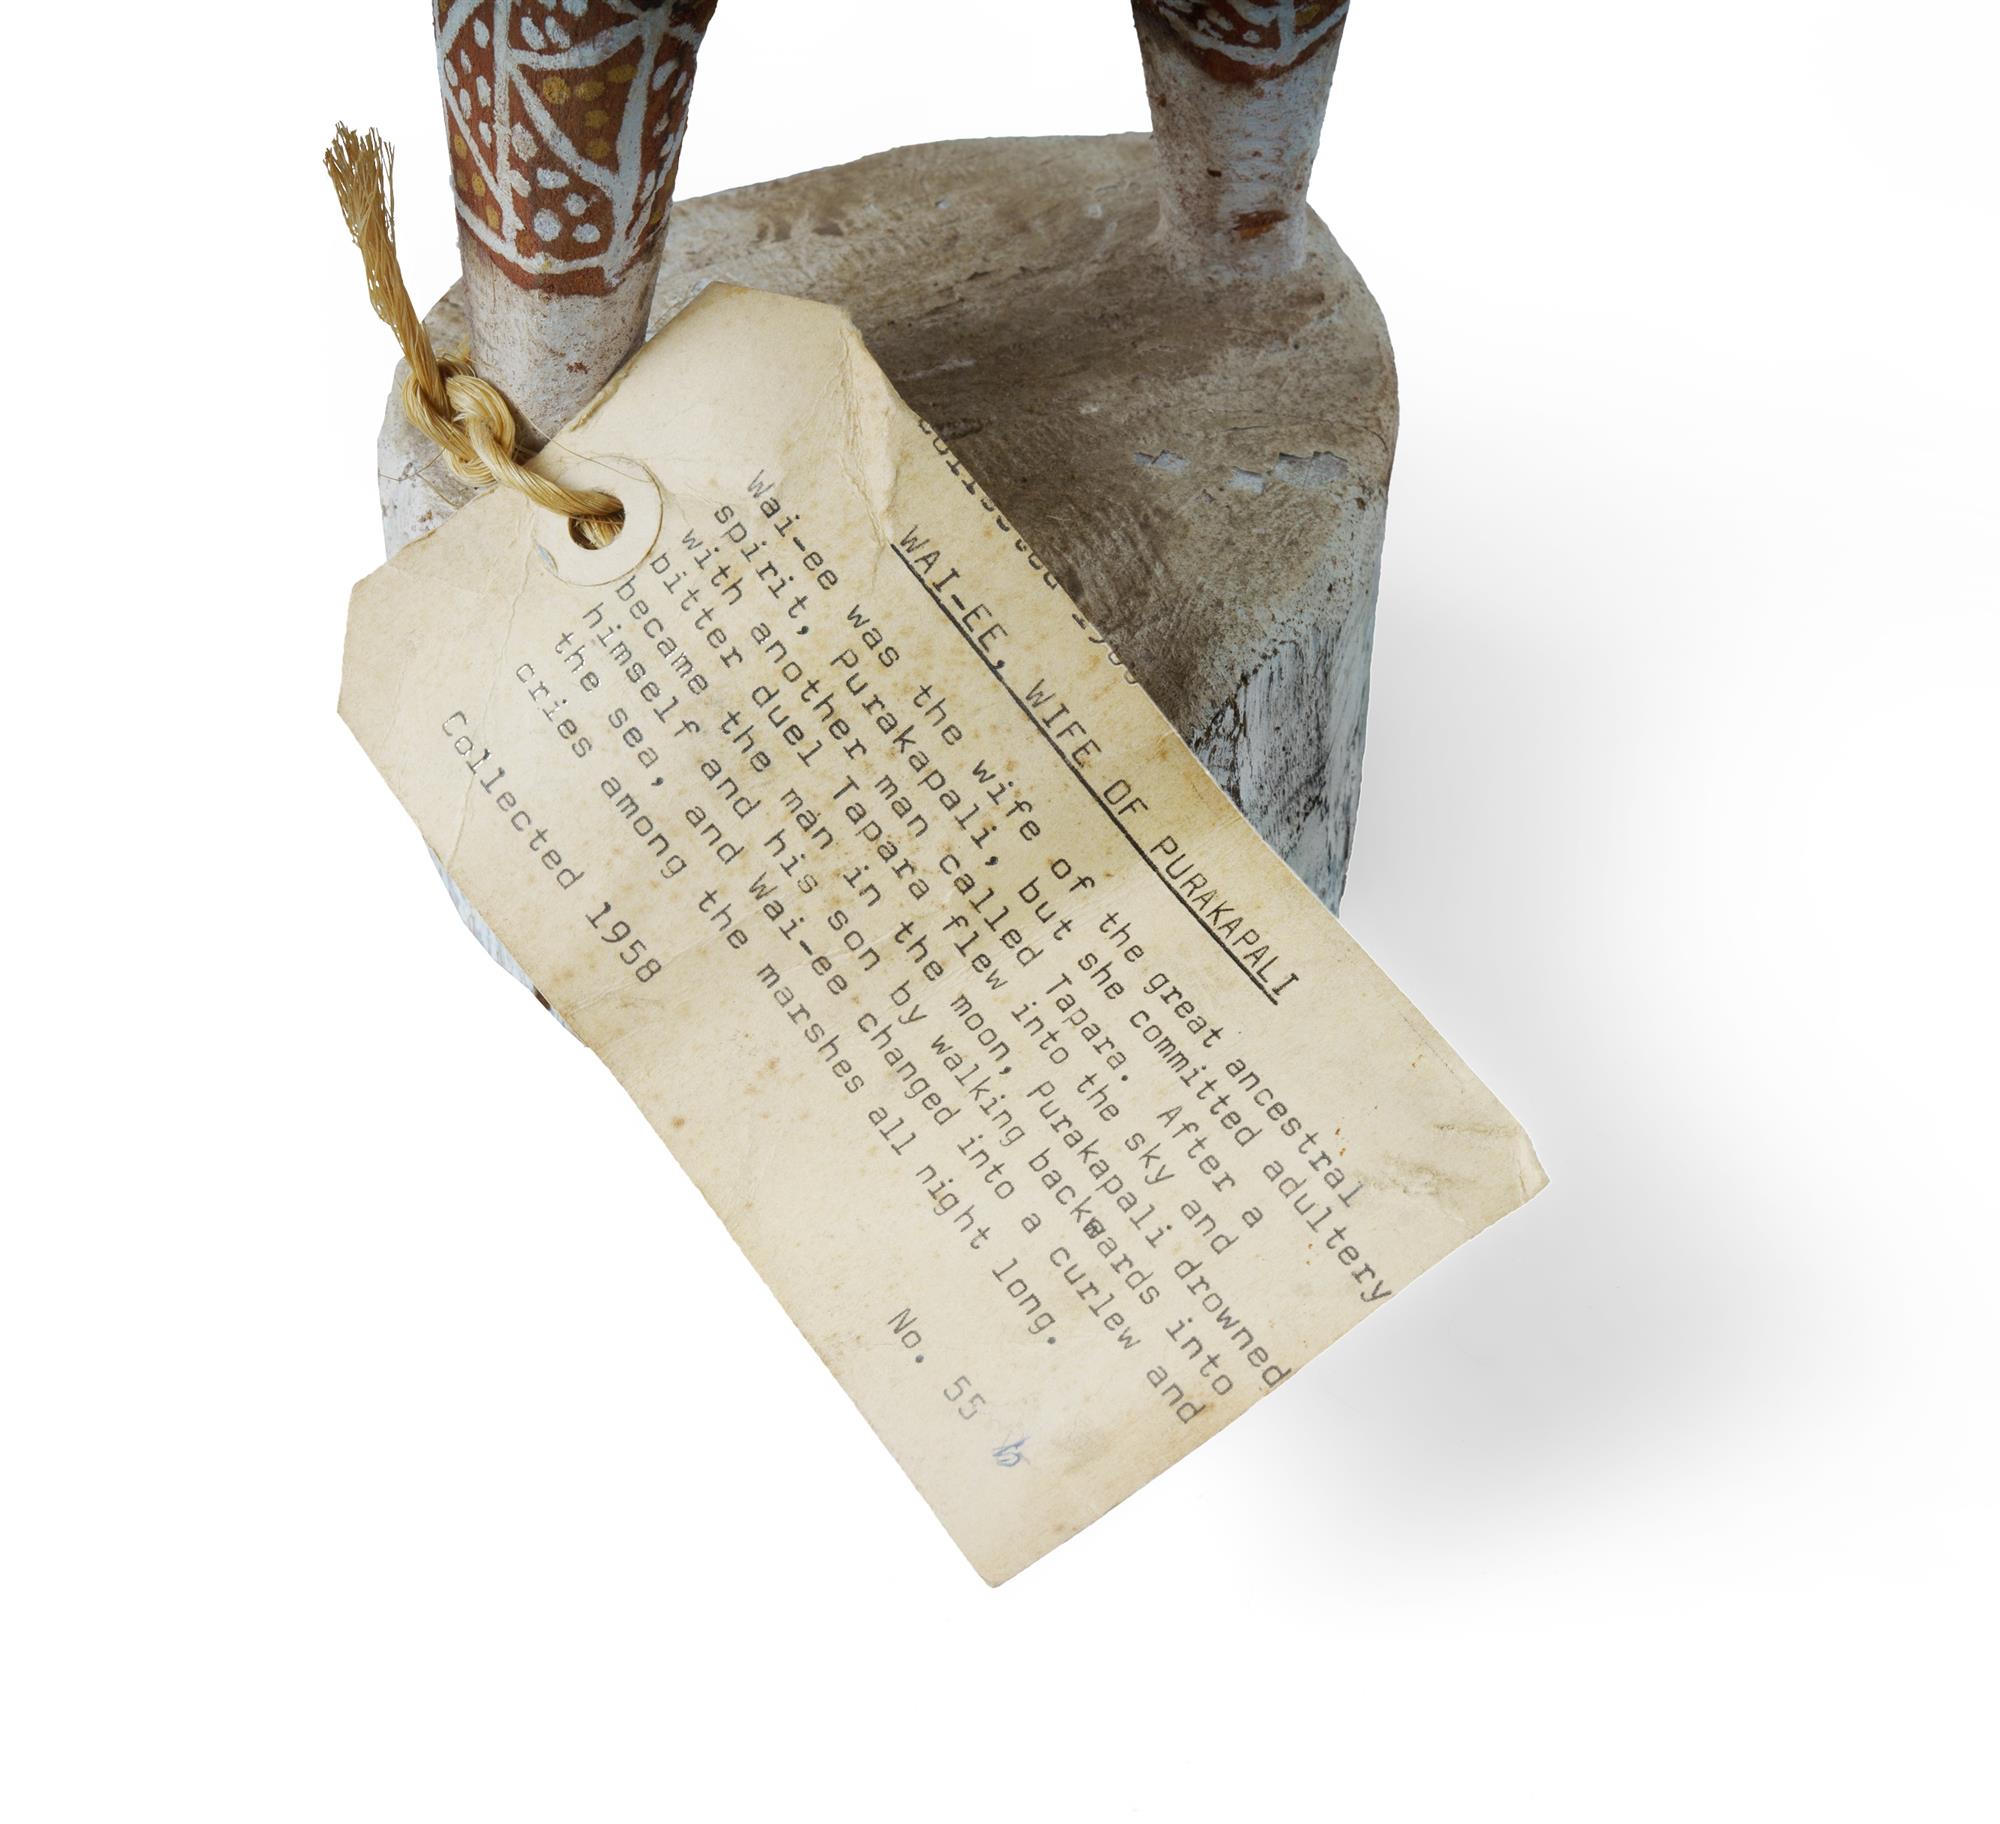 WAI-EE, WIFE OF PURAKAPALI
Wai-ee was the wife of the great ancestral
spirit, Purakapali, but she committed adultery
with another man called Tapara. After a
bitter duel Tapara flew into the sky and
became the man in the moon, Purakapali drowned
himself and his son by walking backwards into
the sea, and Wai-ee changed into a curlew and
cries among the marshes all night long.
Collected 1958
No. 55 b